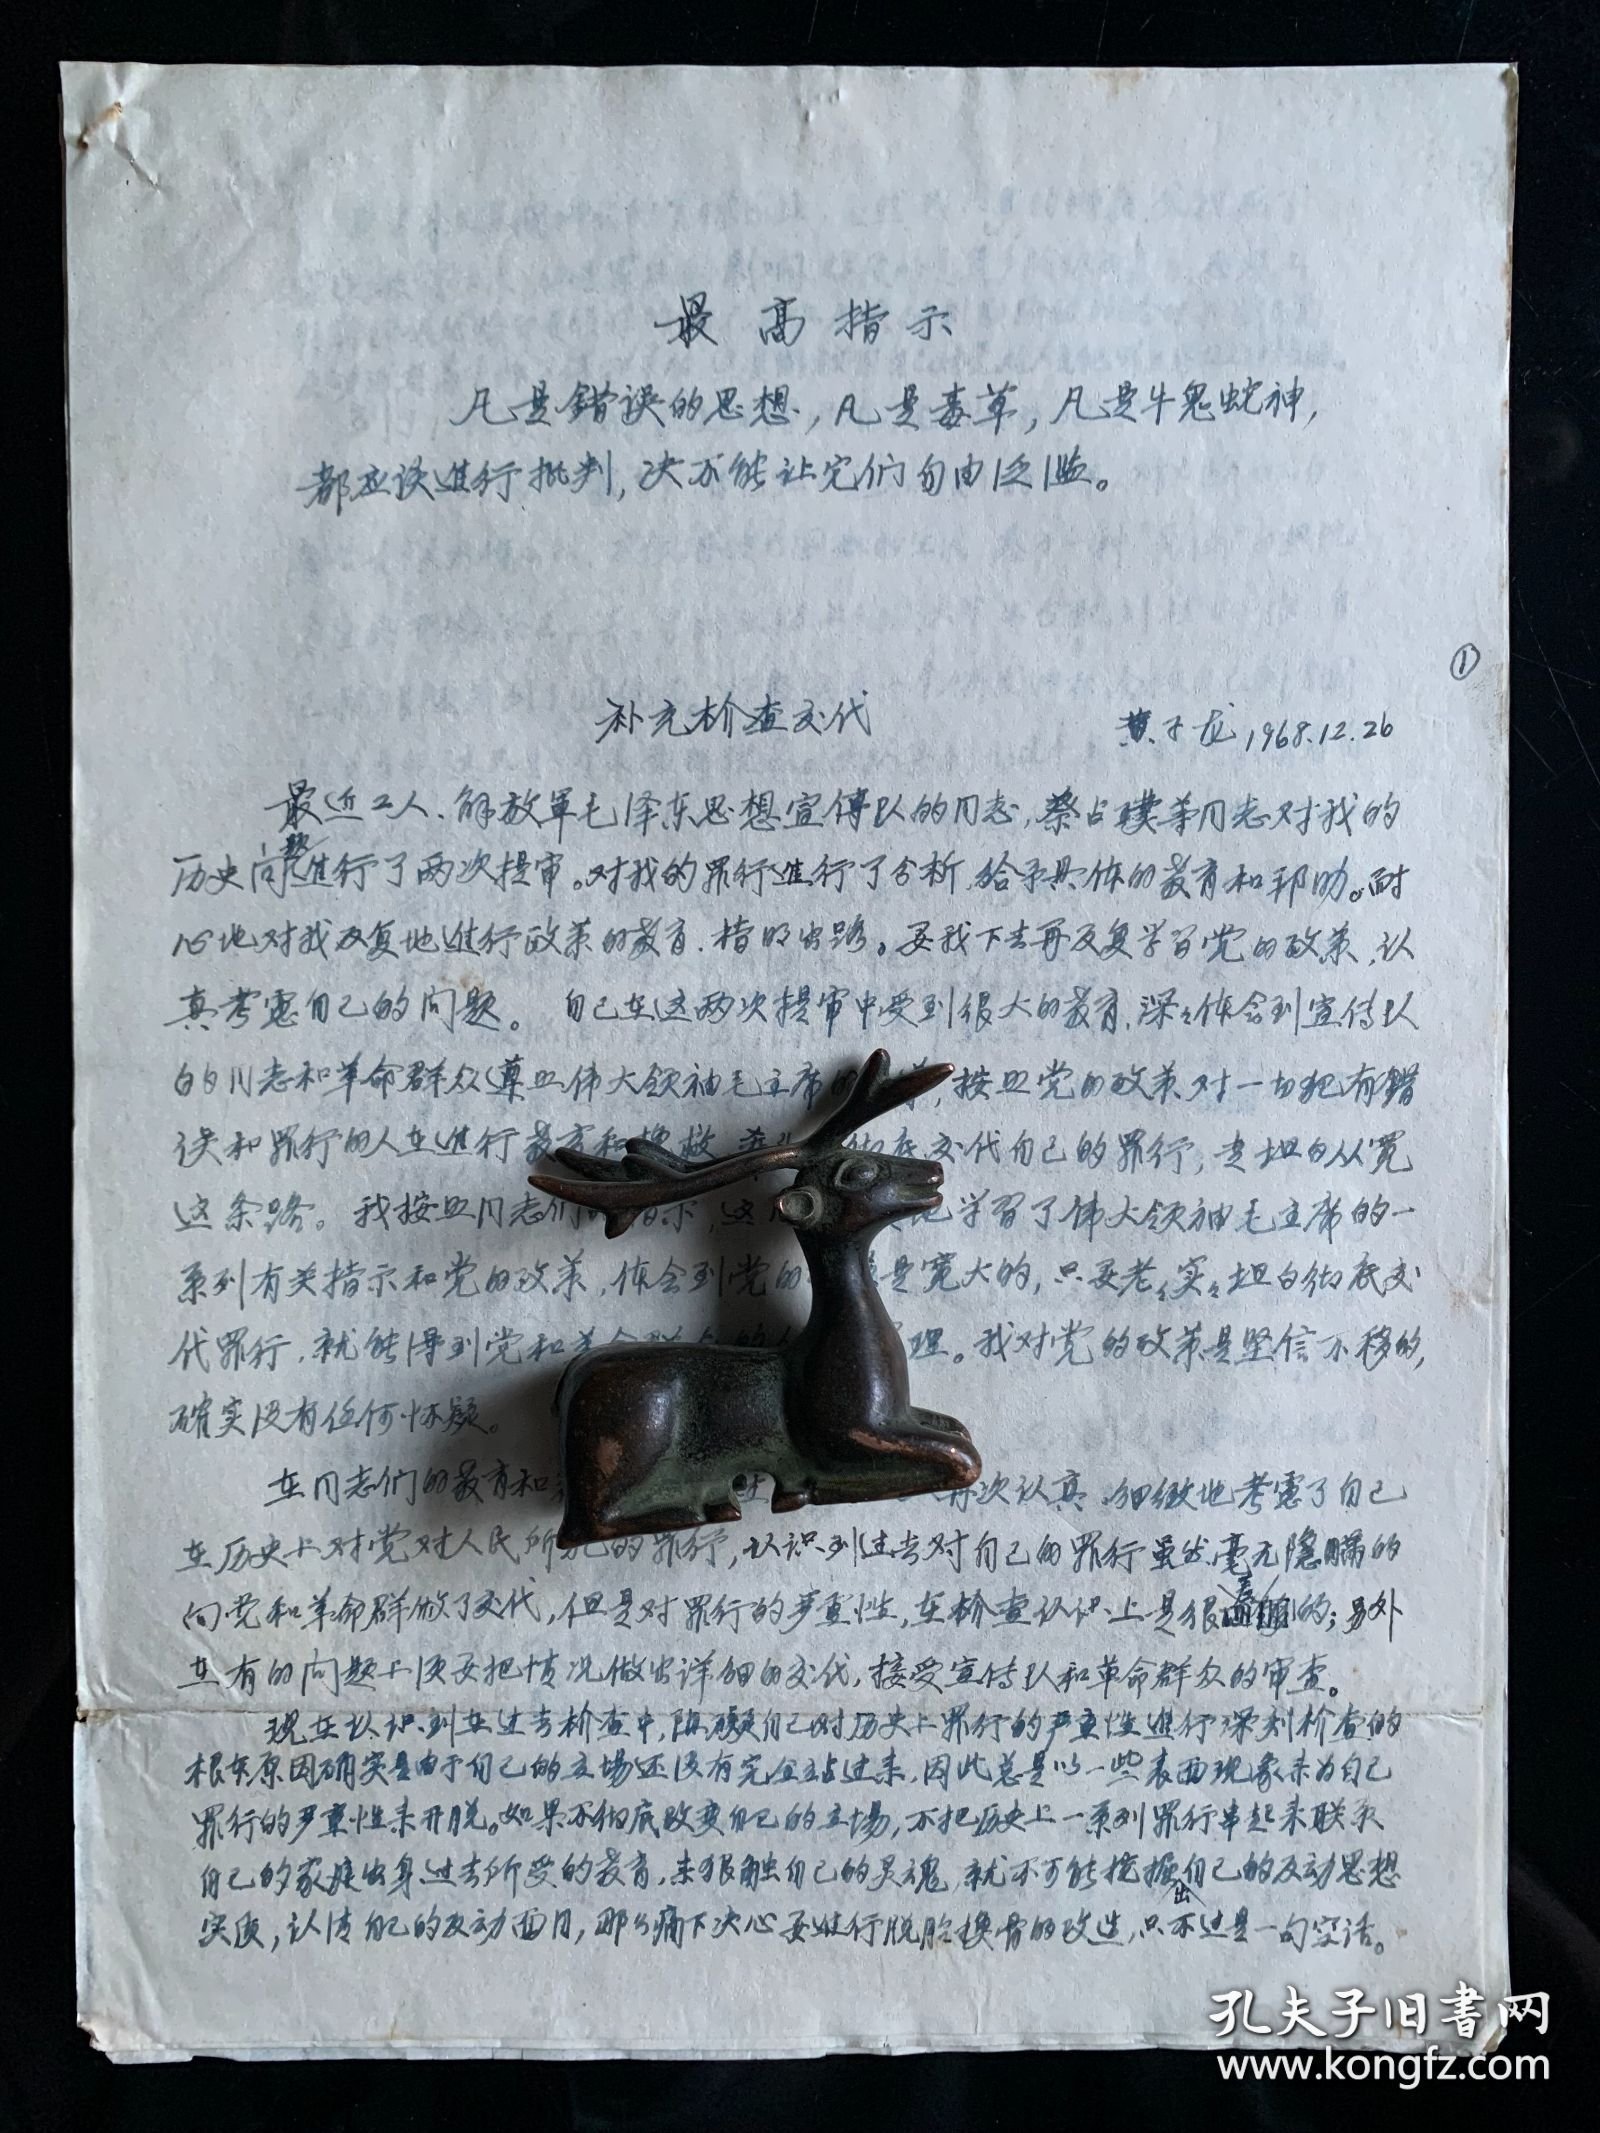 最高指示
凡是错误的思想，凡是毒草，凡是牛鬼蛇神，
都应该进行批判，决不能让它们自由泛滥。
①
补充检查交代
黄子龙 1968.12.26
最近工人、解放军毛泽东思想宣传队的同志，蔡占 等同志对我的
历史问题进行了两次提审。对我的罪行进行了分析，给予具体的教育和帮助。耐
心地对我反复地进行政策的教育，指明出路。要我下去再反复学习党的政策，认
真考虑自己的问题。 自己在这两次提审中受到很大的教育，深深体会到宣传队
的同志和革命群众遵照伟大领袖毛主席的 ，按照党的政策对一切犯有错
误和罪行的人在进行教育和挽救 彻底交代自己的罪行，走坦白从宽
这条路。我按照同志们的指示，这 学习了伟大领袖毛主席的一
系列有关指示和党的政策，体会到党的 是宽大的，只要老老实实坦白彻底交
代罪行，就能得到党和革命群众的 理。我对党的政策是坚信不移的，
确实没有任何怀疑。
在同志们的教育和 再次认真、细致地考虑了自己
在历史上对党对人民所犯的罪行，认识到过去对自己的罪行虽然毫无隐瞒的
向党和革命群众做了交代，但是对罪行的严重性，在检查认识上是很 的；另外
在有的问题上须要把情况做出详细的交代，接受宣传队和革命群众的审查。
现在认识到在过去检查中，阻碍自己对历史上罪行的严重性进行深刻检查的
根本原因确实是由于自己的立场还没有完全站过来，因此总是以一些表面现象来为自己
罪行的严重性来开脱。如果不彻底改变自己的立场，不把历史上一系列罪行串起来联系
自己的家庭出身、过去所受的教育，来狠触自己的灵魂，就不可能挖掘出自己的反动思想
实质，认清自己的反动面目，那么痛下决心要进行脱胎换骨的改造，只不过是一句空话。
孔夫子旧书网
www.kongfz.com